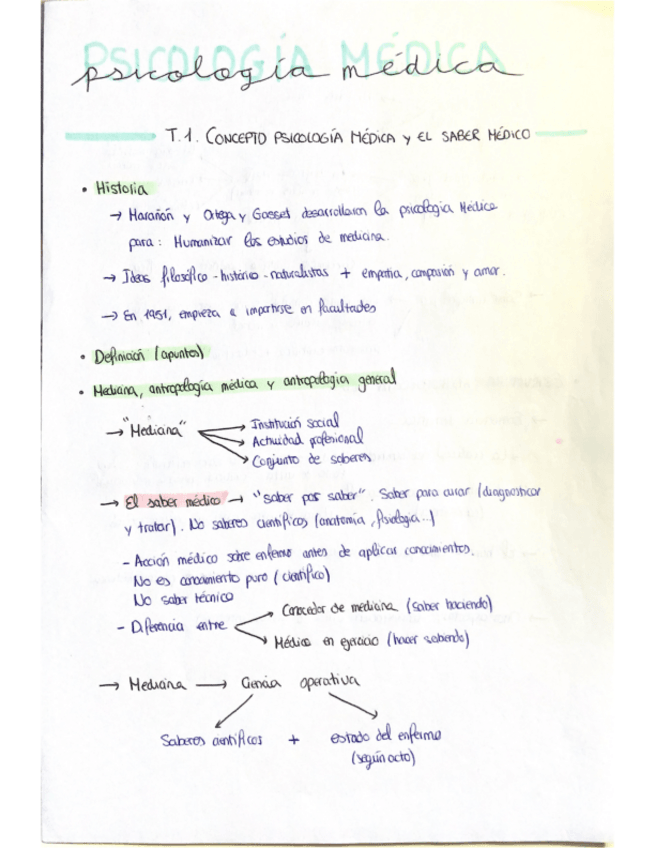 PSICOLOGÍA MÉDICA
psicología médica
T.1. CONCEPTO PSICOLOGÍA MÉDICA y EL SABER MÉDICO
• Historia
→ Marañón y Ortega y Gasset desarrollaron la psicología Médica
para: Humanizar los estudios de medicina.
→ Ideas filosófico-histórico-naturalistas + empatía, compasión y amor.
→ En 1951, empieza a impartirse en facultades
• Definición (apuntes)
• Medicina, antropología médica y antropología general
→ "Medicina" → Institución social
→ Actividad profesional
→ Conjunto de saberes
→ El saber médico → "saber por saber". Saber para curar (diagnosticar
y tratar). No saberes científicos (anatomía, fisiología...)
- Acción médico sobre enfermo antes de aplicar conocimientos.
No es conocimiento puro (científico)
No saber técnico
- Diferencia entre → Conocedor de medicina (saber haciendo)
→ Médico en ejercicio (hacer sabiendo)
→ Medicina → Ciencia operativa
Saberes científicos + estado del enfermo
(según acto)